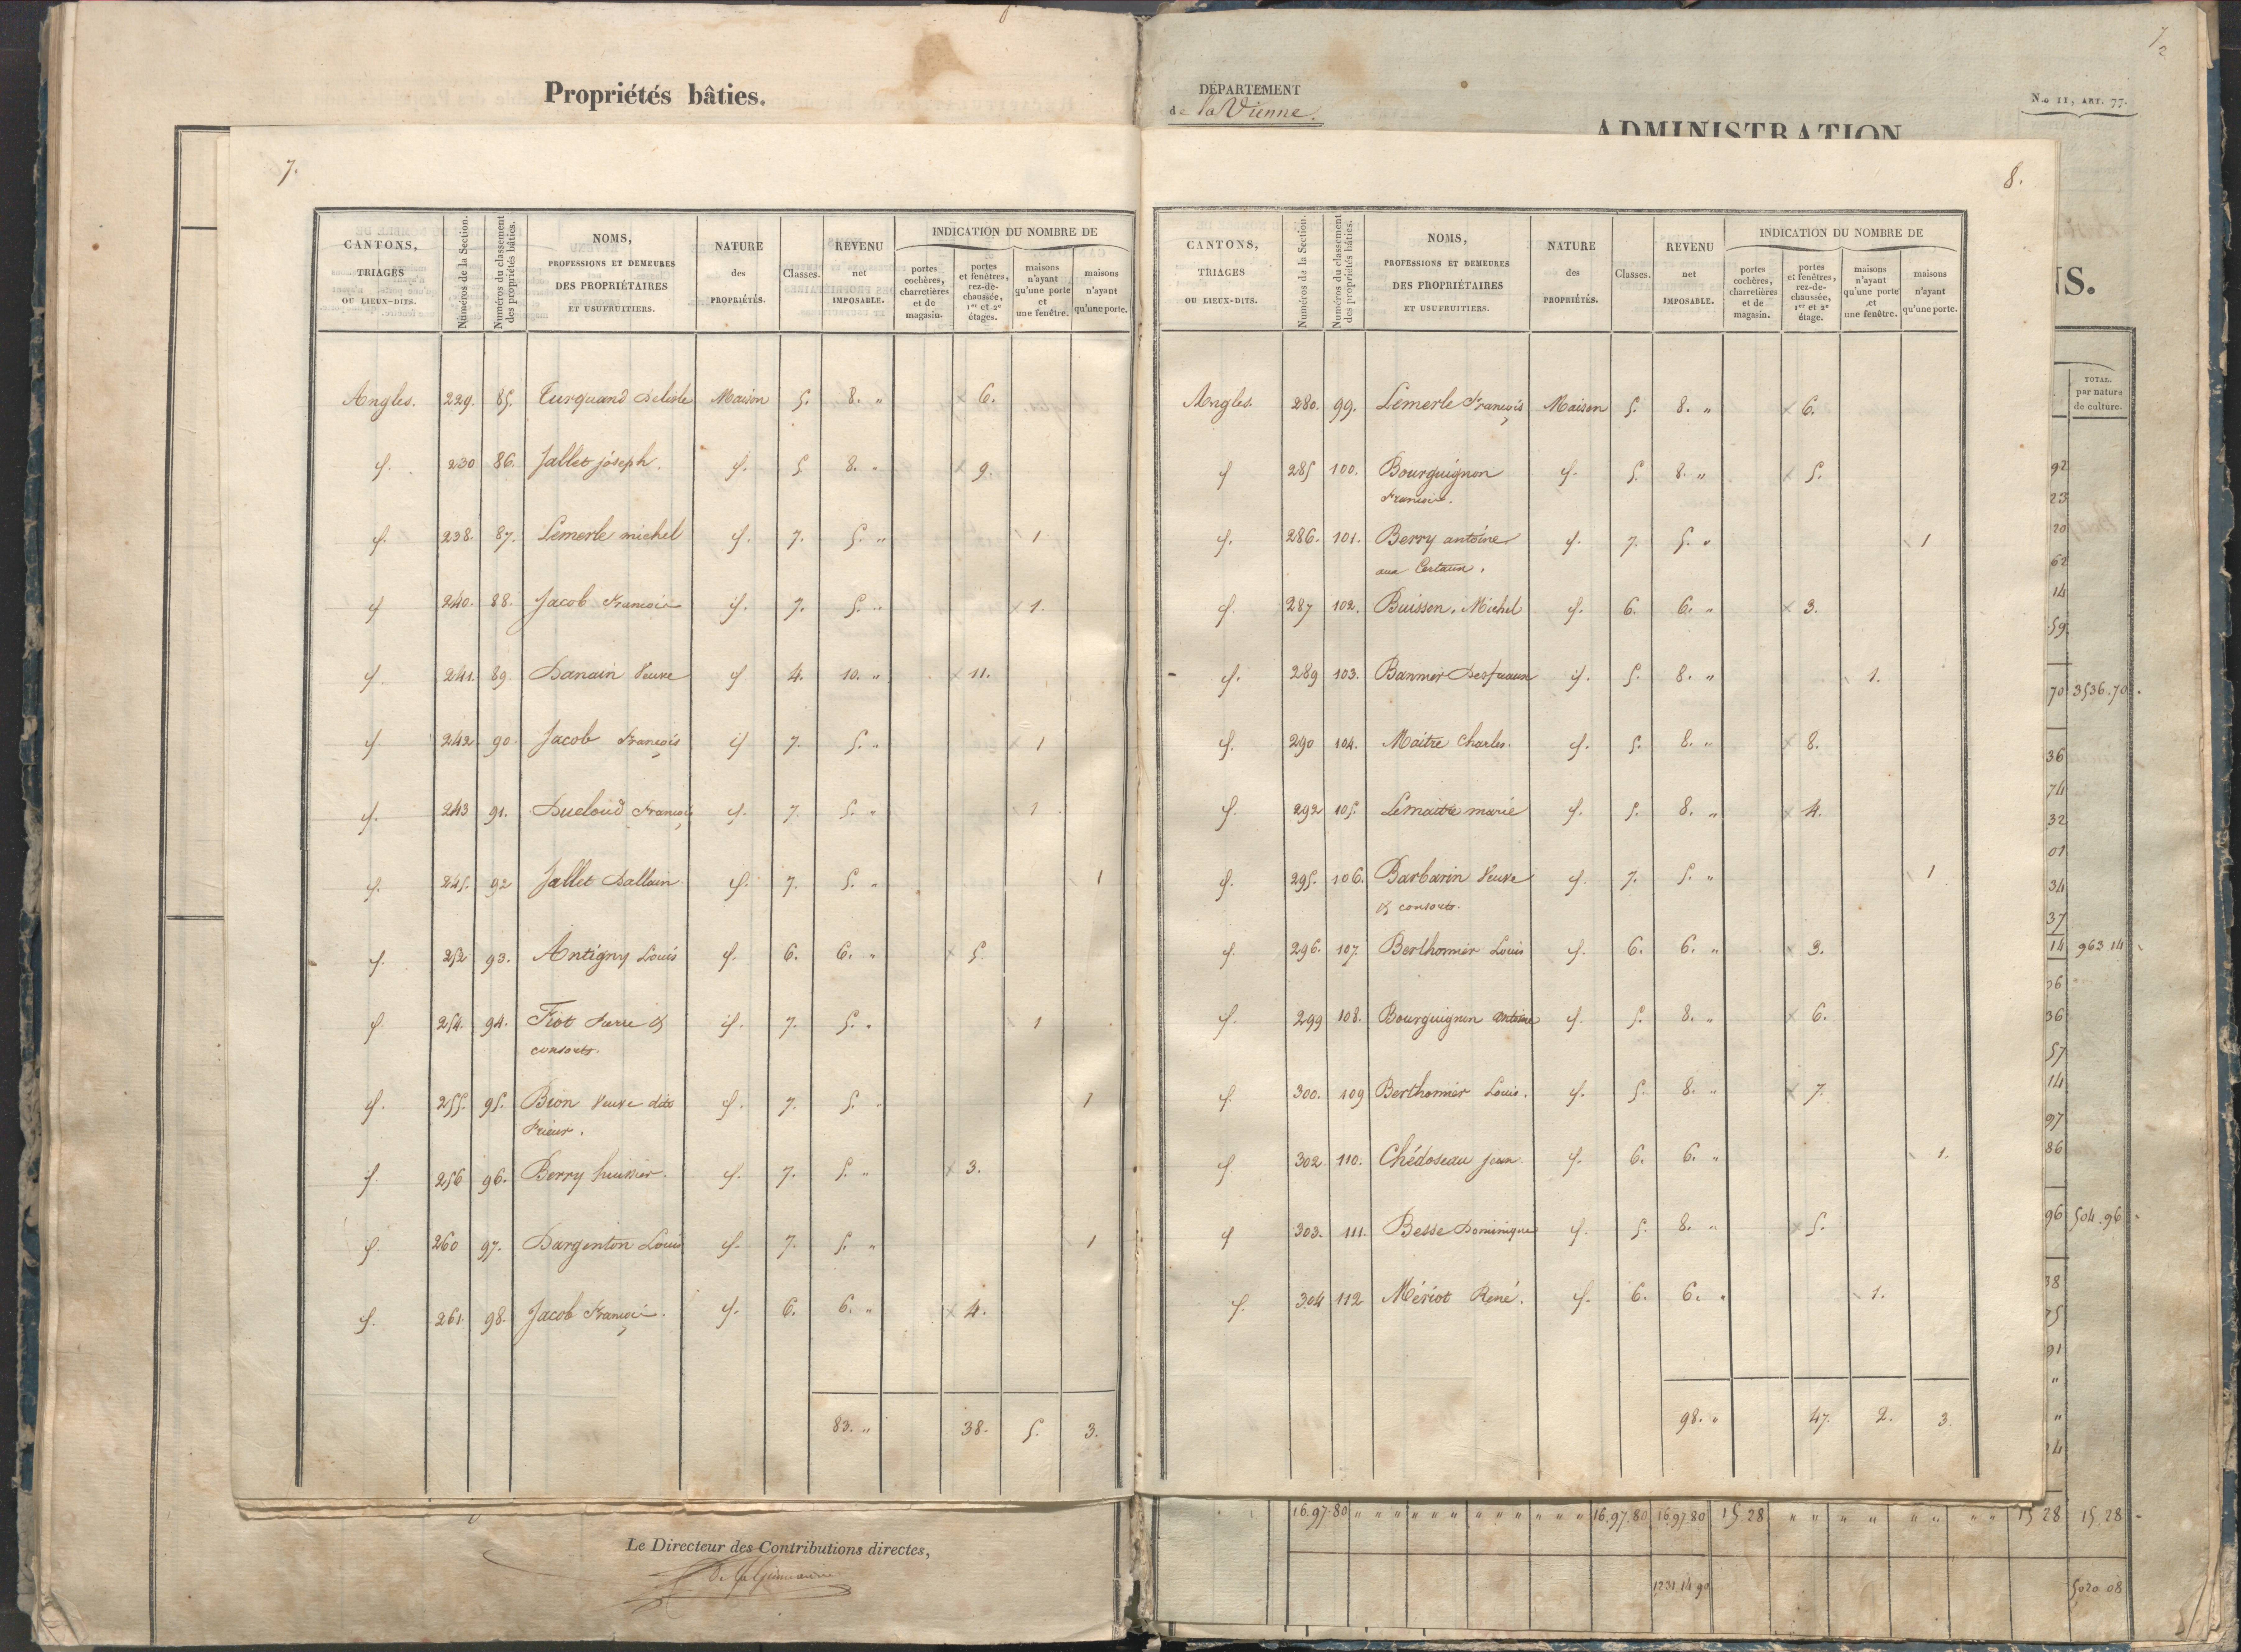 Propriétés bâties.
7.
CANTONS, TRIAGES OU LIEUX-DITS. | Numéros de la Section. | Numéros du classement des propriétés bâties. | NOMS, PROFESSIONS ET DEMEURES DES PROPRIÉTAIRES ET USUFRUITIERS. | NATURE des PROPRIÉTÉS. | Classes. | REVENU net IMPOSABLE. | INDICATION DU NOMBRE DE
portes cochères, charretières et de magasin. | portes et fenêtres, rez-de-chaussée, 1er et 2e étages. | maisons n'ayant qu'une porte et une fenêtre. | maisons n'ayant qu'une porte.
Angles. 229. 85. Turquand Delisle Maison 5. 8. " × 6.
if. 230 86. Jallet joseph. if. 5 8. " × 9.
if. 238. 87. Lemerle michel if. 7. 5. " 1
if 240. 88. Jacob François if. 7. 5. " × 1.
if. 241. 89. Danain Veuve if 4. 10. " × 11.
if. 242 90 Jacob François if 7. 5. " × 1
if. 243 91. Ducloud François if. 7. 5. " × 1
if. 245. 92 Jallet Dallain if. 7. 5. " 1
if. 252 93. Antigny Louis if. 6. 6. " × 5
if. 254. 94. Fiot Pierre &
consorts. if. 7. 5. " 1
if. 255. 95. Bion Veuve dite
Prieur. if. 7. 5. " 1
if. 256 96. Berry huissier. if. 7. 5. " × 3.
if. 260 97. Dargenton Louis if. 7. 5. " 1
if. 261. 98. Jacob François. if. 6. 6. " × 4.
83. " 38. 5. 3.
Le Directeur des Contributions directes,
DÉPARTEMENT
de la Vienne.
N.o 11, ART. 77.
7
2
ADMINISTRATION
NS.
8.
CANTONS, TRIAGES OU LIEUX-DITS. | Numéros de la Section. | Numéros du classement des propriétés bâties. | NOMS, PROFESSIONS ET DEMEURES DES PROPRIÉTAIRES ET USUFRUITIERS. | NATURE des PROPRIÉTÉS. | Classes. | REVENU net IMPOSABLE. | INDICATION DU NOMBRE DE
portes cochères, charretières et de magasin. | portes et fenêtres, rez-de-chaussée, 1er et 2e étage. | maisons n'ayant qu'une porte et une fenêtre. | maisons n'ayant qu'une porte.
Angles. 280. 99. Lemerle François Maison 5. 8. " × 6.
if 285 100. Bourguignon
François. if. 5. 8. " × 5.
if. 286. 101. Berry antoine
aux Certaux. if. 7. 5. " 1
if. 287 102. Buisson, Michel if. 6. 6. " × 3.
if. 289 103. Bannier if. 5. 8. " 1.
if. 290 104. Maitre Charles. if. 5. 8. " × 8.
if. 292 105. Lemaitre marie if. 5. 8. " × 4.
if. 295. 106. Barbarin Veuve
& consorts. if. 7. 5. " 1
if. 296. 107. Berthomier Louis if. 6. 6. " × 3.
if. 299 108. Bourguignon antoine if. 5. 8. " × 6.
if. 300. 109 Berthomier Louis. if. 5. 8. " × 7.
if. 302 110. Chédoseau jean. if. 6. 6. " 1.
if 303. 111. Besse Dominique if. 5. 8. " × 5.
if. 304 112 Mériot René. if. 6. 6. " 1.
98. " 47. 2. 3
TOTAL.
par nature
de culture.
92
23
20
62
14
59
70 3536.70
36
74
32
01
34
37
14 963 14
36
57
14
97
86
96 504.96
38
91
"
"
16.97.80 " " " " " " " " " " " " 16.97.80 16.97.80 15 28 " " " " " " " " 15 28 15.28
1231.14.90 5020 08